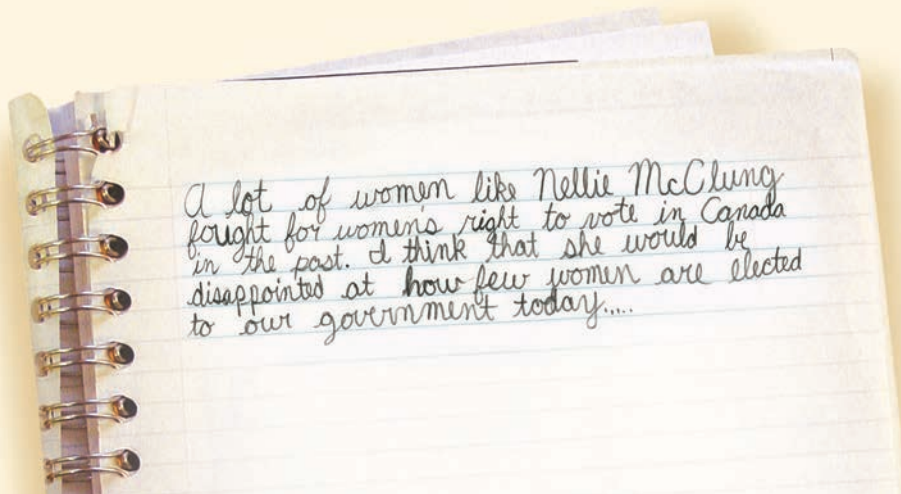 A lot of women like Nellie McClung
fought for women's right to vote in Canada
in the past. I think that she would be
disappointed at how few women are elected
to our government today.....